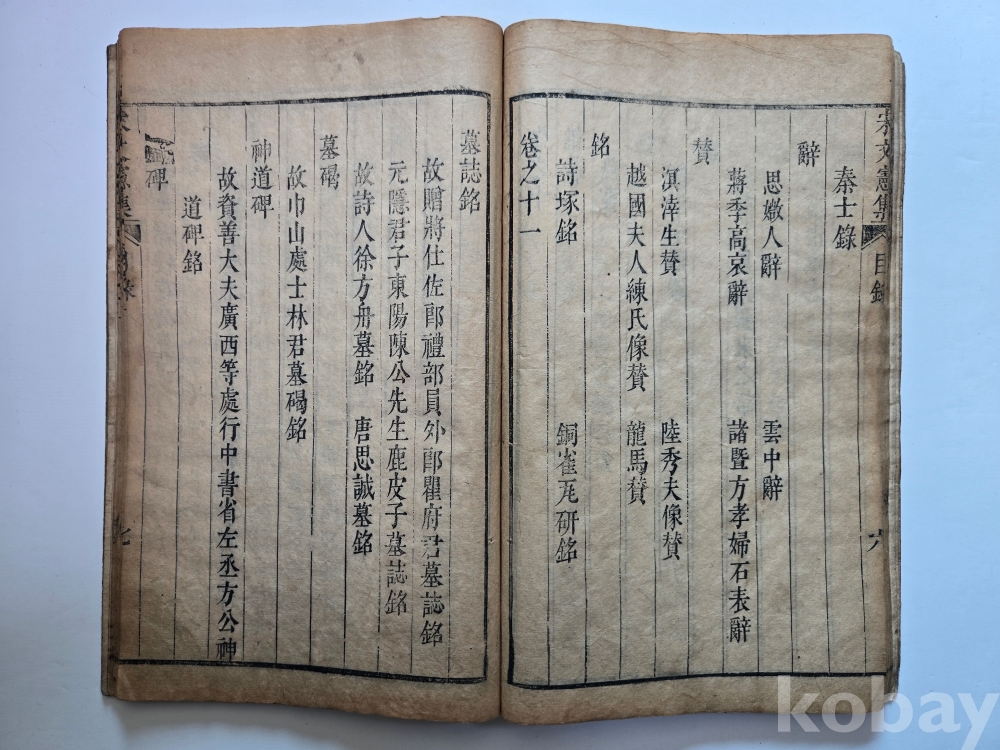 宋文憲集 目錄 六
秦士錄
辭
思媺人辭 雲中辭
蔣季高哀辭 諸暨方孝婦石表辭
贊
溟涬生贊 陸秀夫像贊
越國夫人練氏像贊 龍馬贊
銘
詩塚銘 銅雀瓦硏銘
卷之十一
墓誌銘
故贈將仕佐郎禮部員外郎瞿府君墓誌銘
元隱君子東陽陳公先生鹿皮子墓誌銘
故詩人徐方舟墓銘 唐思誠墓銘
墓碣
故巾山處士林君墓碣銘
神道碑
故資善大夫廣西等處行中書省左丞方公神
道碑銘
碑
七
kobay